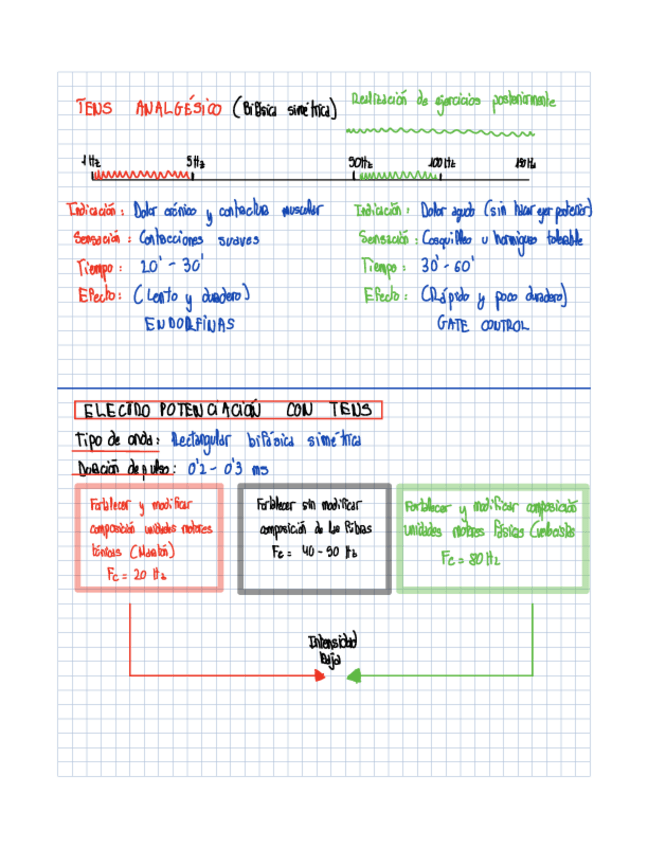 TENS ANALGÉSICO (Bifásica simétrica)
Realización de ejercicios posteriormente
1 Hz 5 Hz 50Hz 100 Hz 150 Hz
Indicación: Dolor crónico y contractura muscular
Sensación: Contracciones suaves
Tiempo: 20' - 30'
Efecto: (Lento y duradero)
ENDORFINAS
Indicación: Dolor agudo (sin hacer ejer posterior)
Sensación: Cosquilleo u hormigueo tolerable
Tiempo: 30' - 60'
Efecto: (Rápido y poco duradero)
GATE CONTROL
ELECTRO POTENCIACIÓN CON TENS
Tipo de onda: Rectangular bifásica simétrica
Duración de pulso: 0'2 - 0'3 ms
Fortalecer y modificar
composición unidades motores
tónicas (Maratón)
Fc = 20 Hz
Fortalecer sin modificar
composición de las fibras
Fc = 40 - 50 Hz
Fortalecer y modificar composición
unidades motores fásicas (velocista
Fc = 80 Hz
Intensidad
Baja